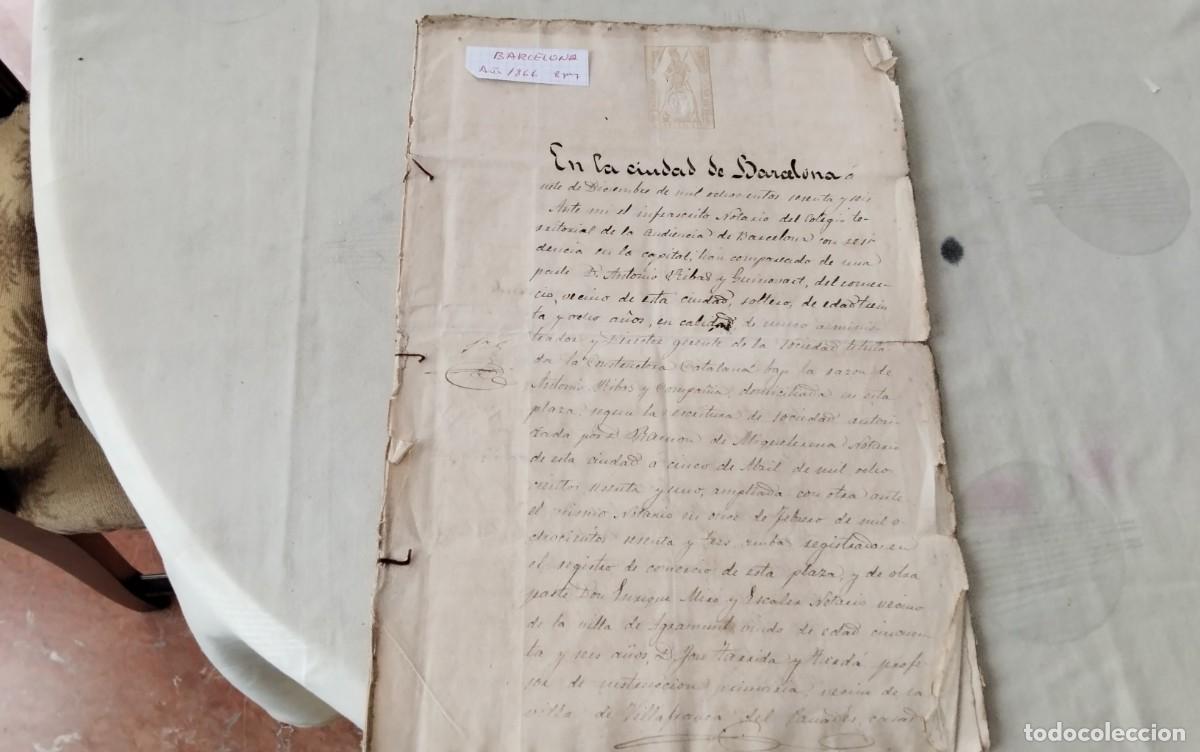 BARCELONA
Año 1866 8 pag
En la ciudad de Barcelona á
siete de Diciembre de mil ochocientos sesenta y seis
Ante mi el infrascrito Notario del Colegio te-
rritorial de la Audiencia de Barcelona con resi
dencia en la capital, han comparecido de una
parte D. Antonio Ribas y Guinovart, del comer-
cio, vecino de esta ciudad, soltero, de edad trein
ta y ocho años, en calidad de unico adminis
trador y Director gerente de la Sociedad titula-
da la Constructora Catalana bajo la razon de
Antonio Ribas y Compañia, domiciliada en esta
plaza, segun la escritura de sociedad autori-
zada por D. Ramon de Miquelerena Notario
de esta ciudad a cinco de Abril de mil ocho
cientos sesenta y uno, ampliada con otra ante
el mismo Notario en once de Febrero de mil o-
chocientos sesenta y tres ambas registradas en
el registro de comercio de esta plaza, y de otra
parte Don Enrique Miro y Escaler Notario vecino
de la villa de Agramunt viudo de edad cincuen-
ta y seis años, D. José Tarrida y profe-
sor de instruccion primaria, vecino de la
villa de Villafranca del Panades, casad
todocoleccion